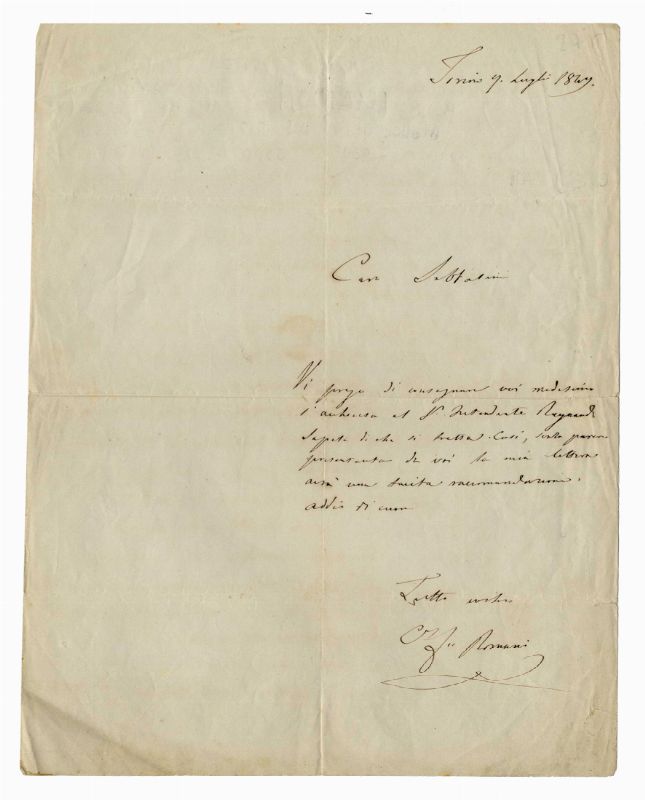 Torino 9. Luglio 1849.
Caro Sabbatini
Vi prego di consegnare voi medesimo
l'acchiusa al Sr Intendente
Sapete di che si tratta. Così,
presentata da voi la mia lettera
avrà una tacita raccomandazione.
Addio di cuore
Tutto vostro
Romani